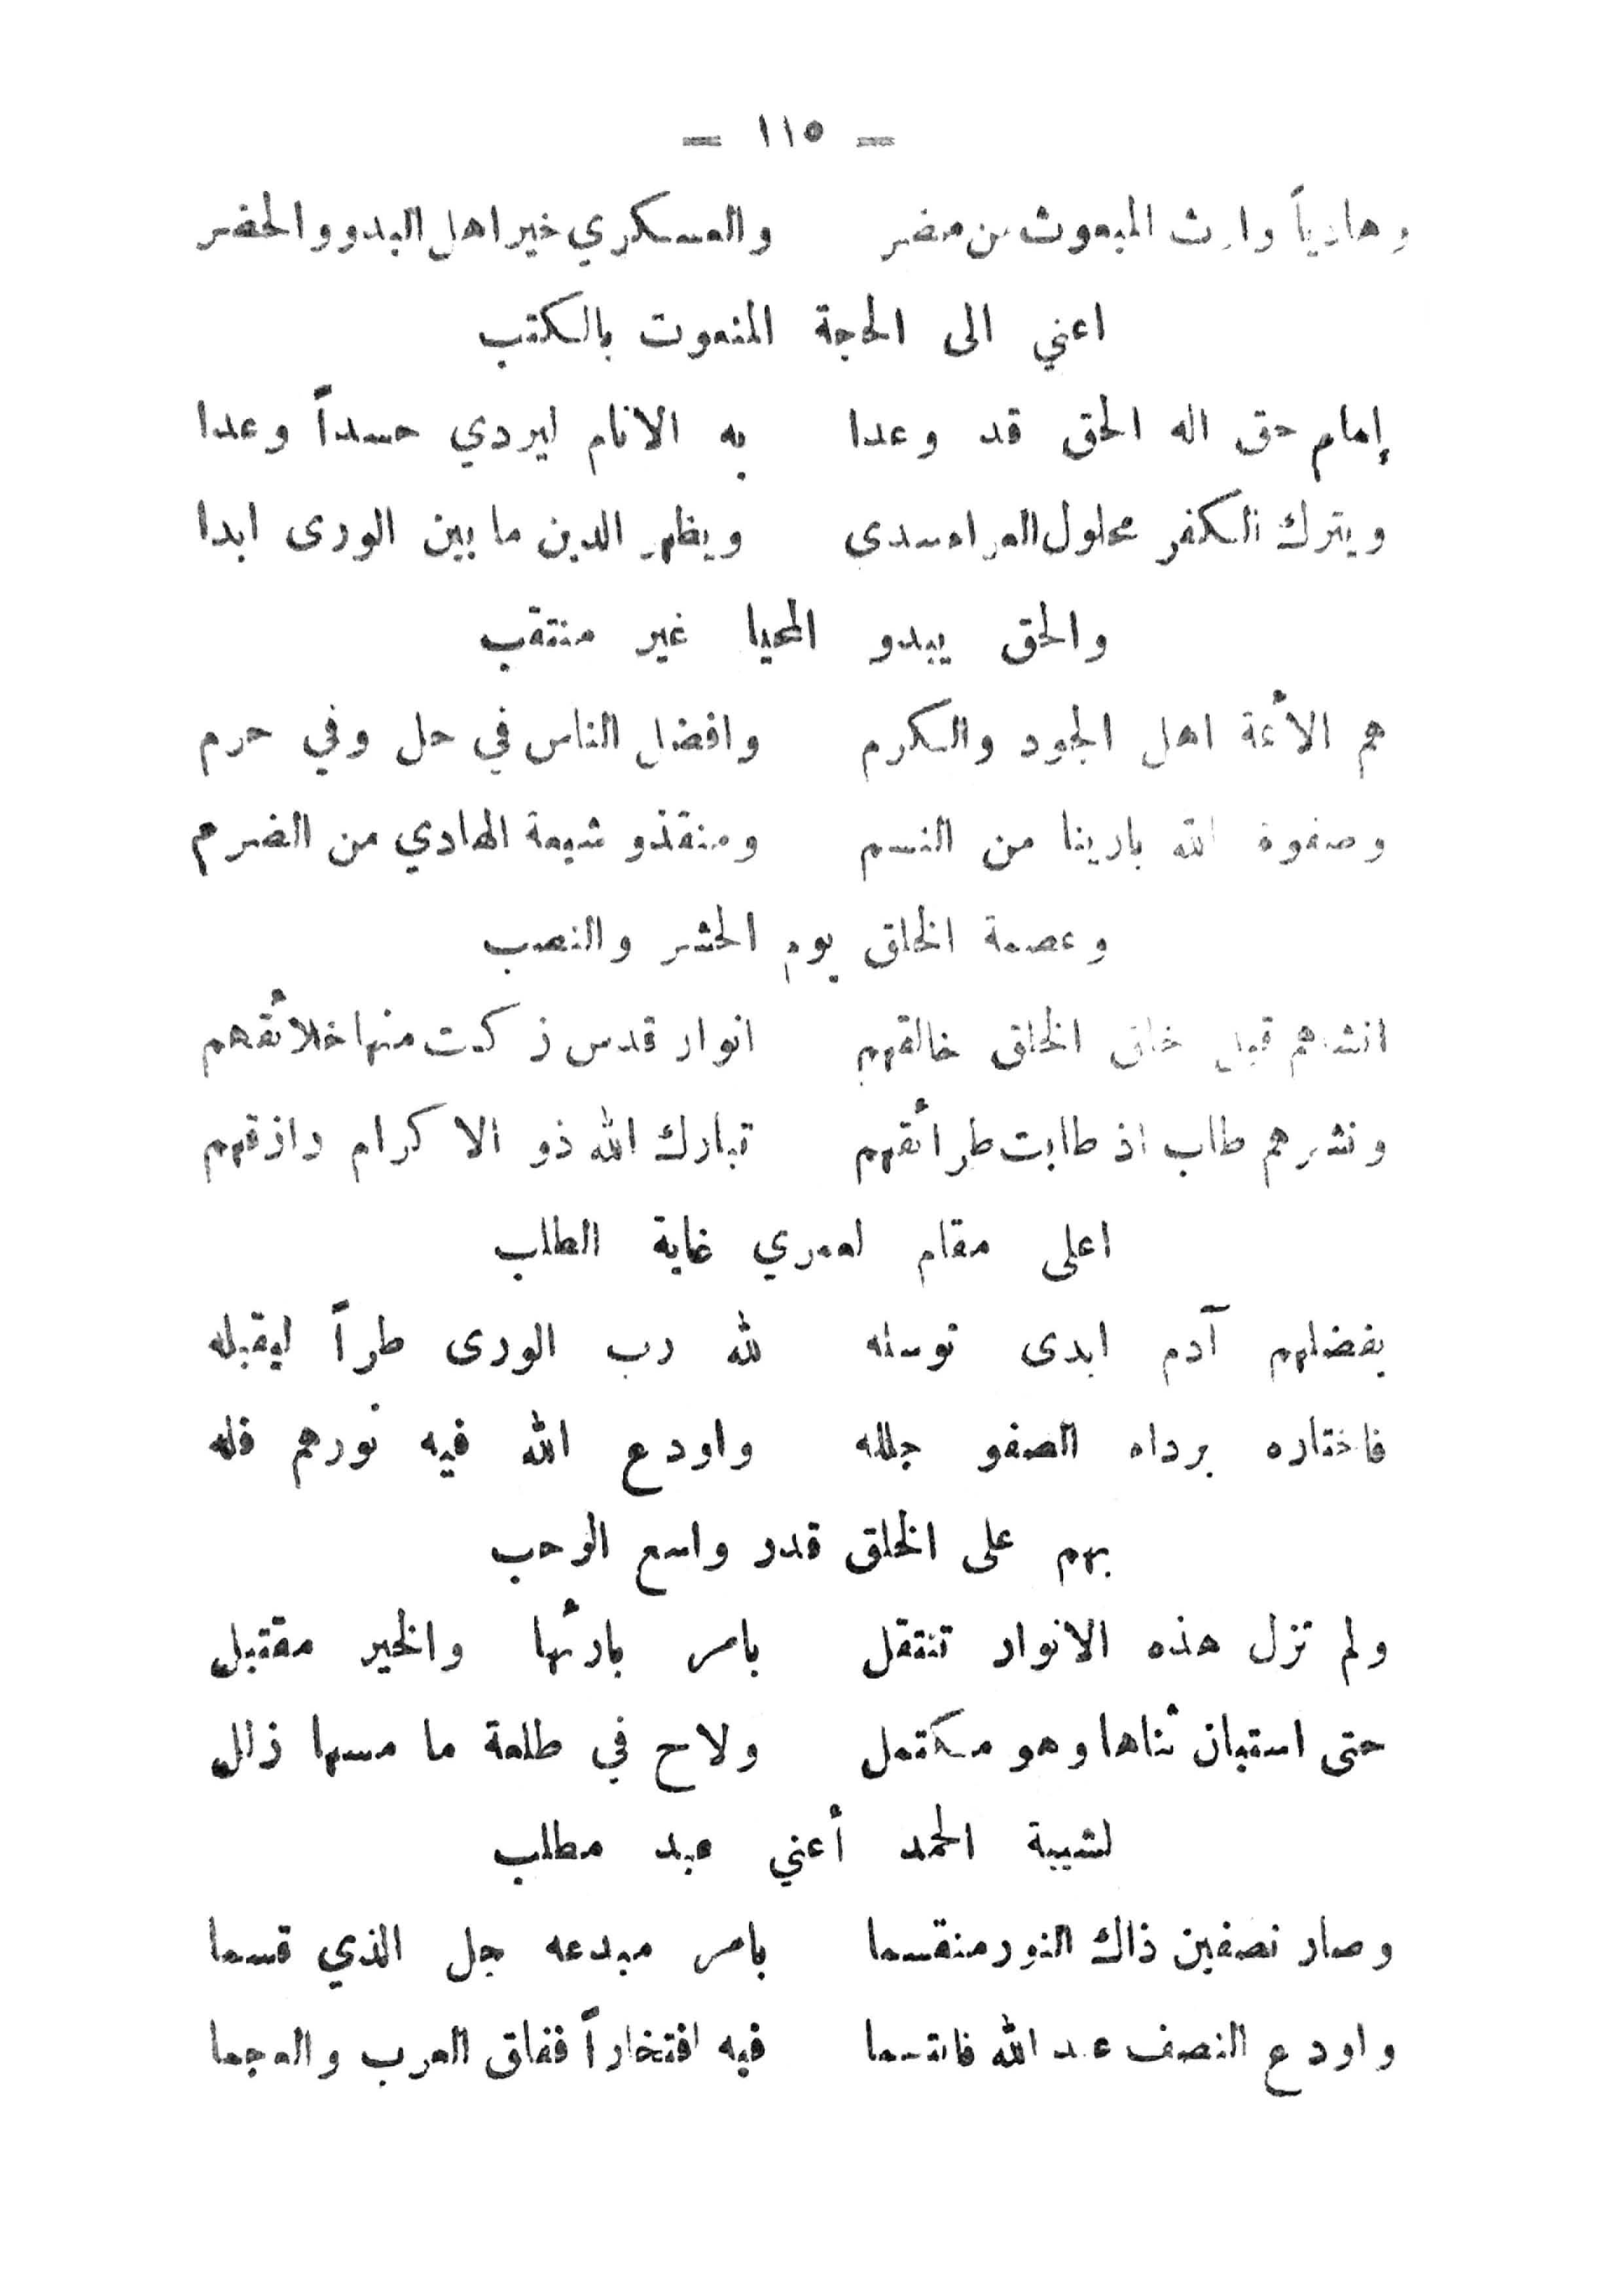 — ١١٥ —
وهادياً وارث المبعوث من مضر والعسكري خير اهل البدو والحضر
اعني الى الحجة المنعوت بالكتب
إمام حق اله الحق قد وعدا به الانام ليردي حسداً وعدا
ويترك الكفر محلول العرا سدى ويظهر الدين ما بين الورى ابدا
والحق يبدو المحيا غير منتقب
هم الأئمة اهل الجود والكرم وافضل الناس في حل وفي حرم
وصفوة الله بارينا من النسم ومنقذو شيعة الهادي من الضرم
وعصمة الخلق يوم الحشر والنصب
انشاهم قبل خلق الخلق خالقهم انوار قدس زكت منها خلائقهم
ونشرهم طاب اذ طابت طرائقهم تبارك الله ذو الاكرام رازقهم
اعلى مقام لعمري غاية الطلب
بفضلهم آدم ابدى توسله لله رب الورى طراً ليقبله
فاختاره برداه الصفو جلله واودع الله فيه نورهم فله
بهم على الخلق قدر واسع الرحب
ولم تزل هذه الانوار تنتقل بامر بارئها والخير مقتبل
حتى استبان ثناها وهو مكتمل ولاح في طلعة ما مسها زلل
لشيبة الحمد أعني عبد مطلب
وصار نصفين ذاك النور منقسما بامر مبدعه جل الذي قسما
واودع النصف عبد الله فاتسما فيه افتخاراً ففاق العرب والعجما